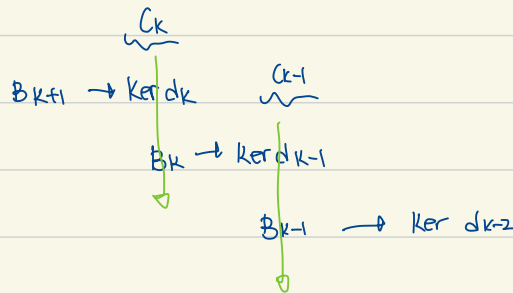 Ck
Ck-1
Bk+1 → Ker dk
Bk → Ker dk-1
Bk-1 → Ker dk-2